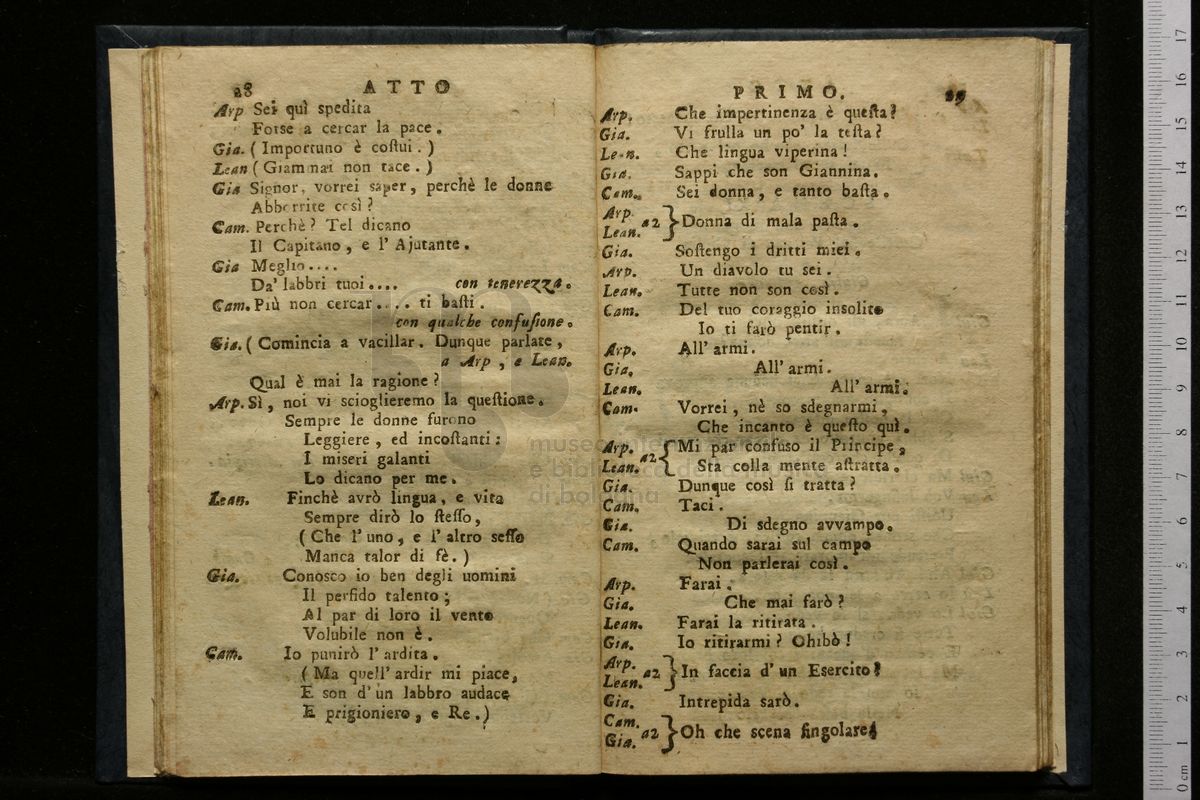 28 ATTO
Arp Sei quì spedita
Forse a cercar la pace.
Gia. ( Importuno è coſtui. )
Lean ( Giammai non tace. )
Gia Signor, vorrei saper, perchè le donne
Abborrite così?
Cam. Perchè? Tel dicano
Il Capitano, e l' Ajutante.
Gia Meglio....
Da' labbri tuoi.... con tenerezza.
Cam. Più non cercar.... ti baſti.
con qualche confuſione.
Gia. ( Comincia a vacillar. Dunque parlate,
a Arp, e Lean.
Qual è mai la ragione?
Arp. Sì, noi vi scioglieremo la queſtione.
Sempre le donne furono
Leggiere, ed incoſtanti:
I miseri galanti
Lo dicano per me.
Lean. Finchè avrò lingua, e vita
Sempre dirò lo ſteſſo,
( Che l' uno, e l' altro seſſo
Manca talor di fè. )
Gia. Conosco io ben degli uomini
Il perfido talento;
Al par di loro il vento
Volubile non è.
Cam. Io punirò l' ardita.
( Ma quell' ardir mi piace,
E son d' un labbro audace
E prigioniero, e Re.)
PRIMO. 29
Arp. Che impertinenza è queſta?
Gia. Vi frulla un po' la teſta?
Lean. Che lingua viperina!
Gia. Sappi che son Giannina.
Cam. Sei donna, e tanto baſta.
Arp.
Lean. a2 } Donna di mala paſta.
Gia. Soſtengo i dritti miei.
Arp. Un diavolo tu sei.
Lean. Tutte non son così.
Cam. Del tuo coraggio insolito
Io ti farò pentir.
Arp. All' armi.
Gia. All' armi.
Lean. All' armi.
Cam. Vorrei, nè so sdegnarmi,
Che incanto è queſto quì.
Arp. a2 { Mi par confuso il Principe,
Lean. Sta colla mente aſtratta.
Gia. Dunque così ſi tratta?
Cam. Taci.
Gia. Di sdegno avvampo.
Cam. Quando sarai sul campo
Non parlerai così.
Arp. Farai.
Gia. Che mai farò?
Lean. Farai la ritirata.
Gia. Io ritirarmi? Ohibò!
Arp.
Lean. a2 } In faccia d' un Esercito?
Gia. Intrepida sarò.
Cam.
Gia. a2 } Oh che scena ſingolare!
museo internazionale
e biblioteca della musica
di bologna
0 cm 1 2 3 4 5 6 7 8 9 10 11 12 13 14 15 16 17